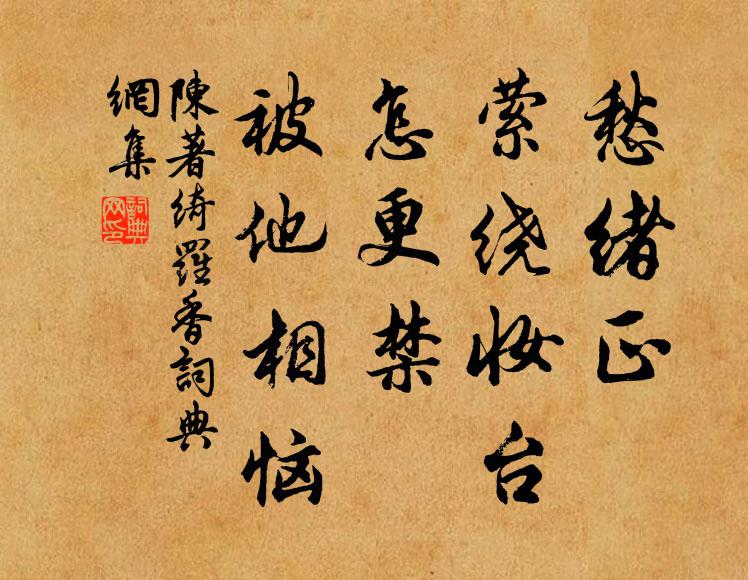 愁绪正
萦绕妆台
怎更禁
被他相恼
陳著綺羅香詞典
網集
詞典
网印